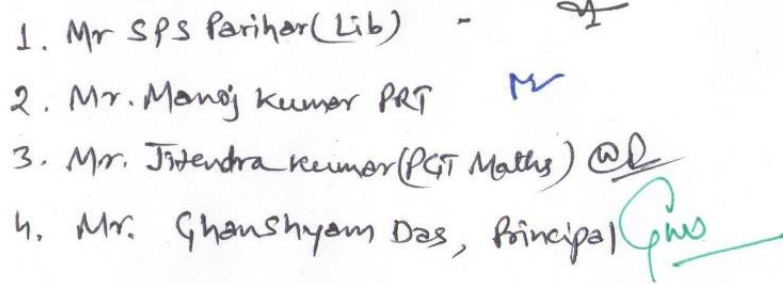 1. Mr SPS Parihar (Lib) -
2. Mr. Manoj Kumar PRT
3. Mr. Jitendra Kumar (PGT Maths)
4. Mr. Ghanshyam Das, Principal